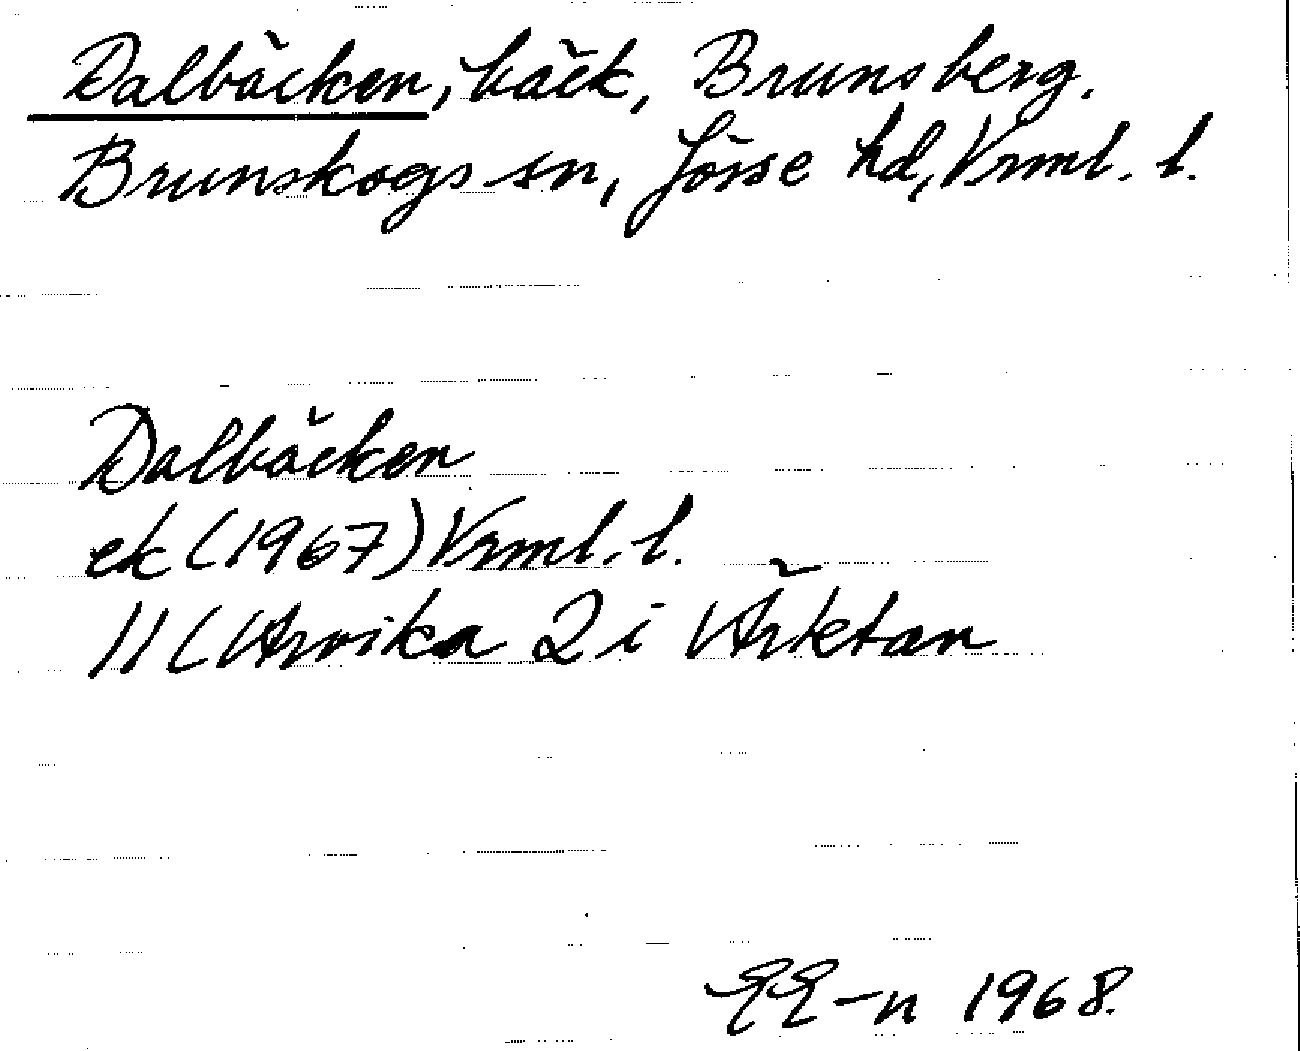 Dalbäcken, bäck, Brunsberg.
Brunskogs sn, Jösse hd, Vrml. l.
Dalbäcken
ek (1967) Vrml. l.
11 ( Arvika 2 i
EE-n 1968.